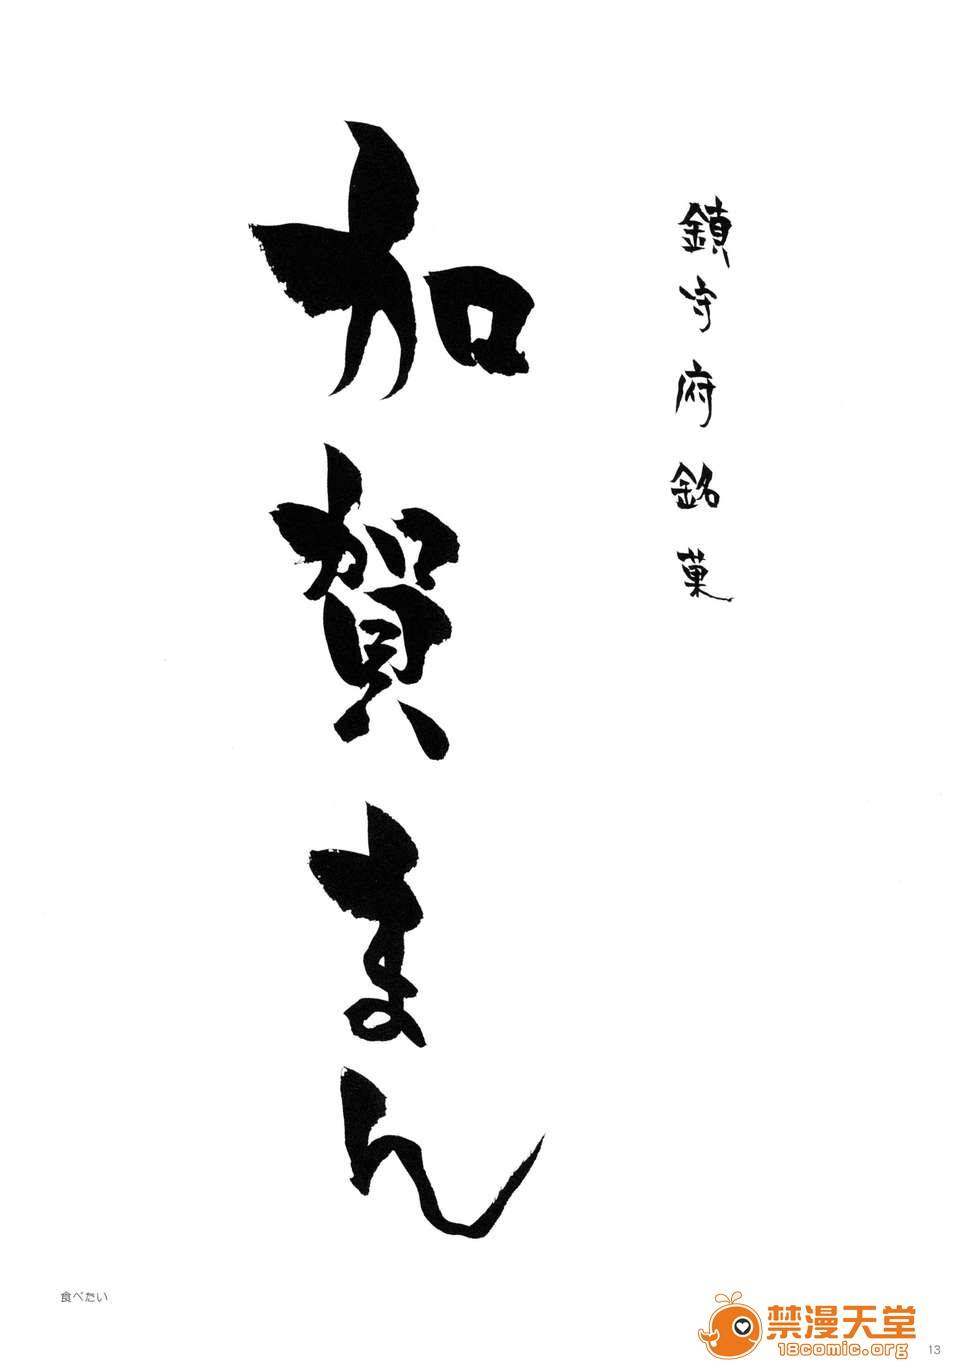 鎮守府銘菓
加賀まん
食べたい
禁漫天堂
18comic.org
13